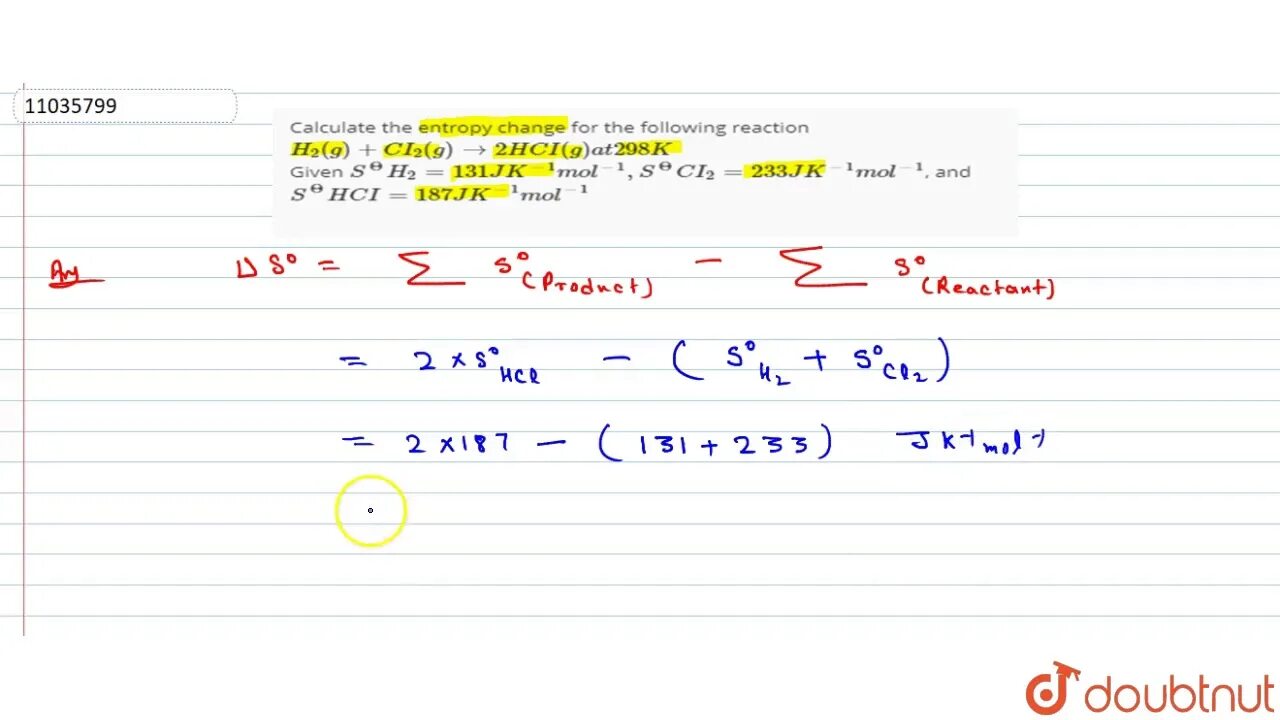 11035799
Calculate the entropy change for the following reaction
H₂(g) + CI₂(g) → 2HCI(g)at298K
Given S^ΘH₂ = 131JK⁻¹mol⁻¹, S^ΘCI₂ = 233JK⁻¹mol⁻¹, and
S^ΘHCI = 187JK⁻¹mol⁻¹
Ans ΔS° = Σ S°(Product) − Σ S°(Reactant)
= 2 × S°HCl − (S°H₂ + S°Cl₂)
= 2 × 187 − (131 + 233) JK⁻¹mol⁻¹
doubtnut